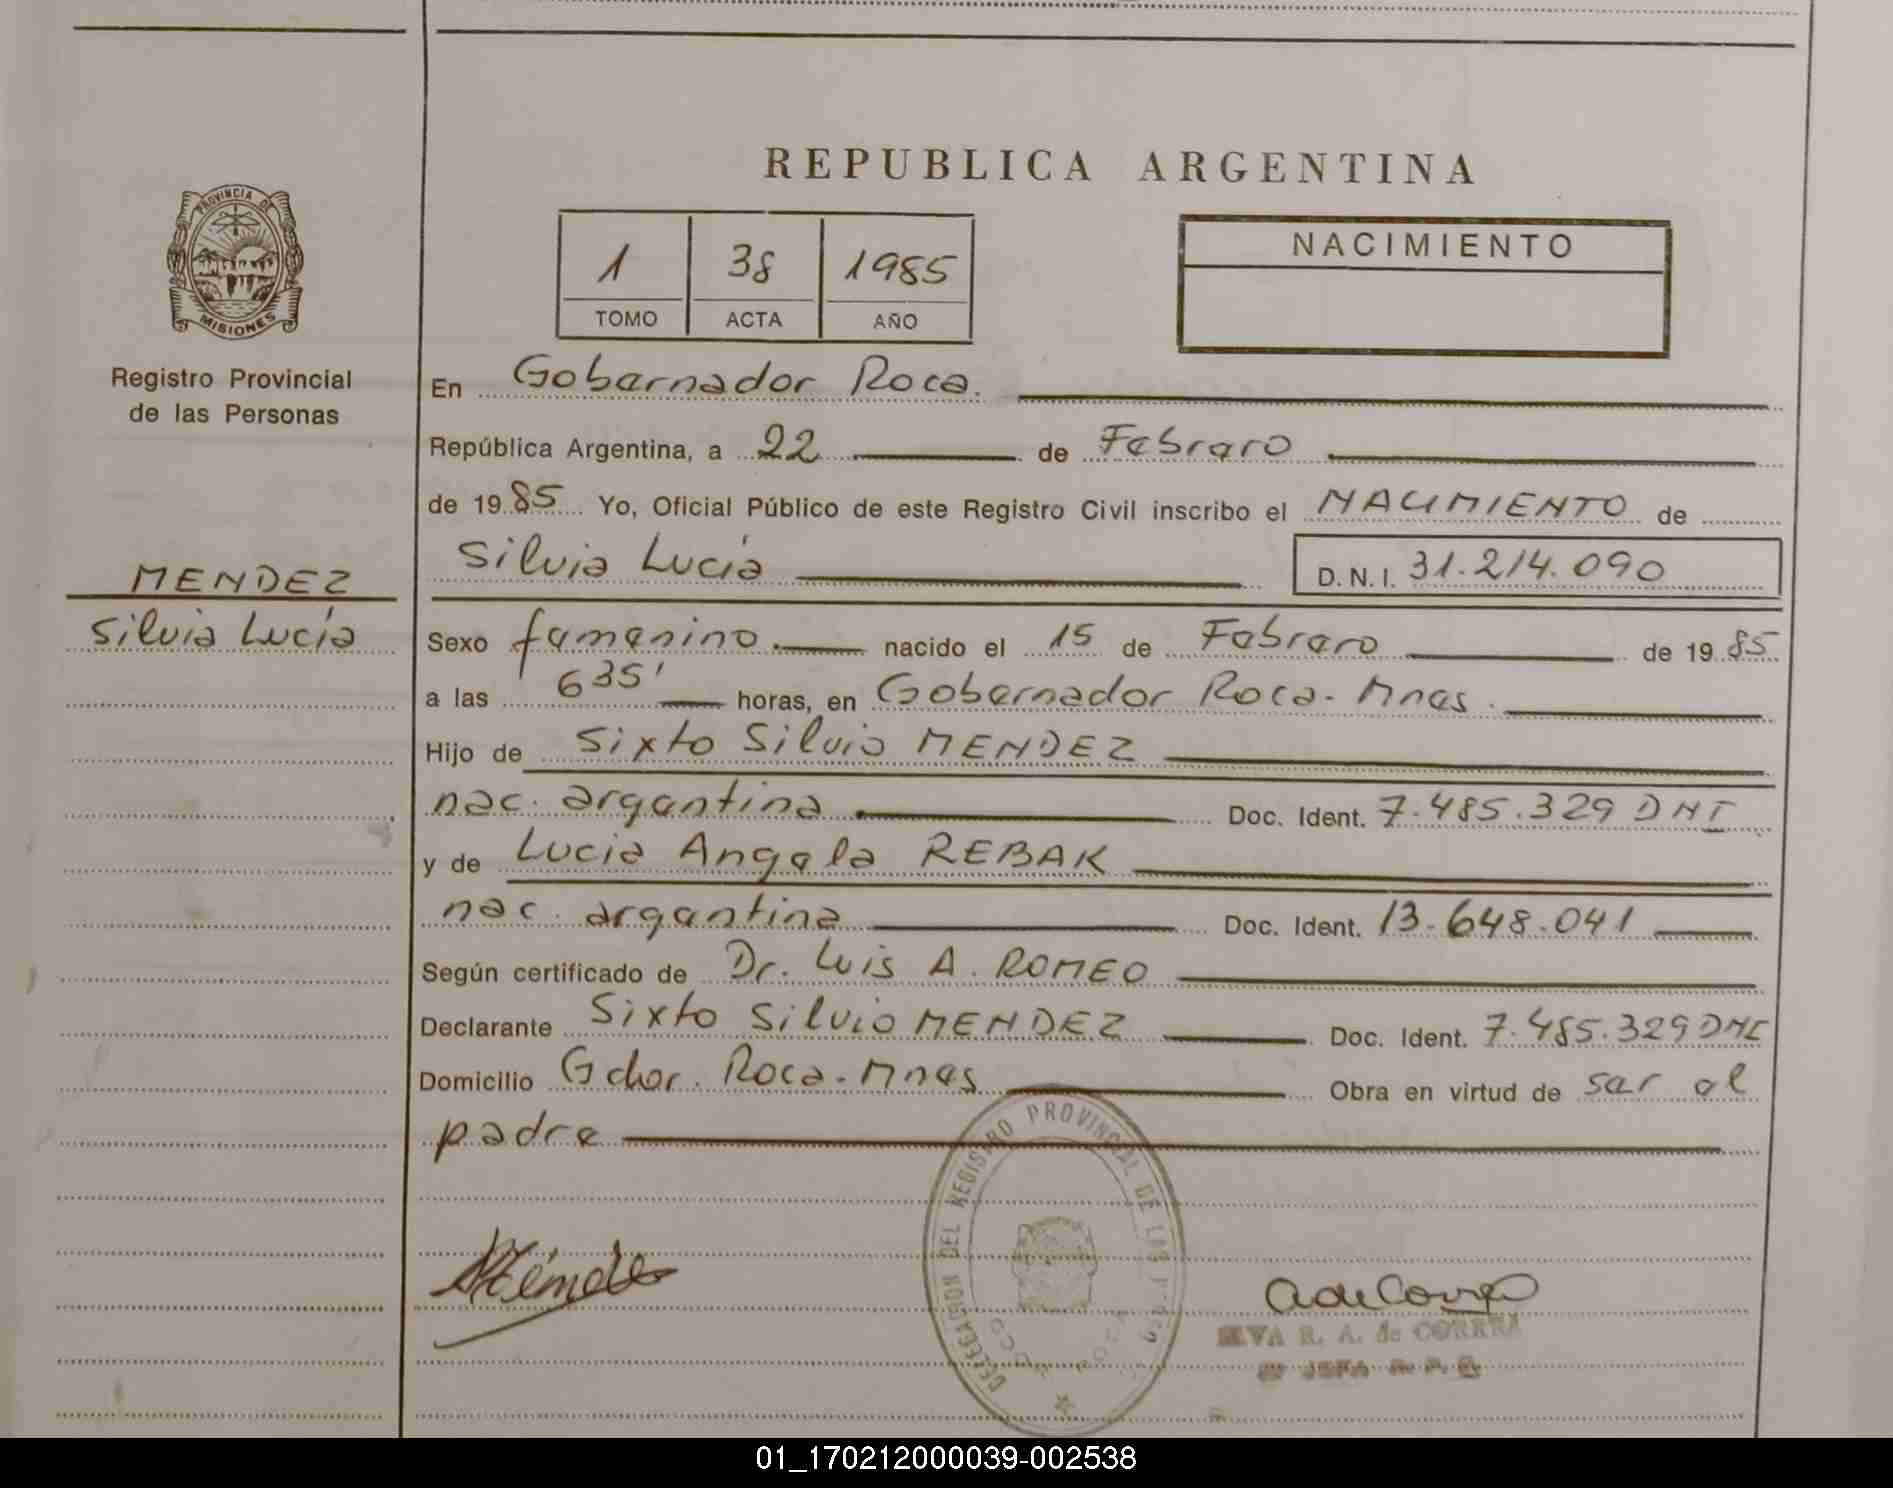 REPUBLICA ARGENTINA
PROVINCIA DE
MISIONES
Registro Provincial
de las Personas
1 38 1985
TOMO ACTA AÑO
NACIMIENTO
En Gobernador Roca.
República Argentina, a 22 de Febrero
de 1985 Yo, Oficial Público de este Registro Civil inscribo el NACIMIENTO de
Silvia Lucía D.N.I. 31.214.090
MENDEZ
Silvia Lucía
Sexo femenino nacido el 15 de Febrero de 1985
a las 635' horas, en Gobernador Roca-Mnes.
Hijo de Sixto Silvio MENDEZ
nac. argentina Doc. Ident. 7.485.329 DNI
y de Lucia Angela REBAK
nac. argentina Doc. Ident. 13.648.041
Según certificado de Dr. Luis A. ROMEO
Declarante Sixto Silvio MENDEZ Doc. Ident. 7.485.329 DNI
Domicilio Gdor. Roca-Mnes Obra en virtud de ser el
padre
DELEGACION DEL REGISTRO PROVINCIAL DE LAS
R. A. de CORREA
JEFA
01_170212000039-002538